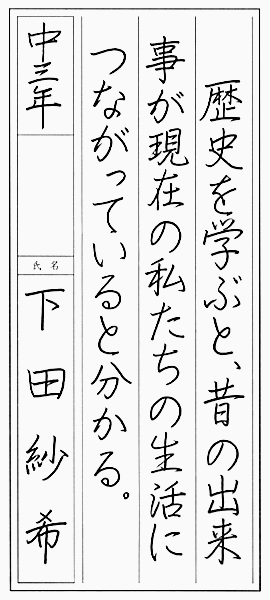 歴史を学ぶと、昔の出来
事が現在の私たちの生活に
つながっていると分かる。
中三年
氏名
下田紗希